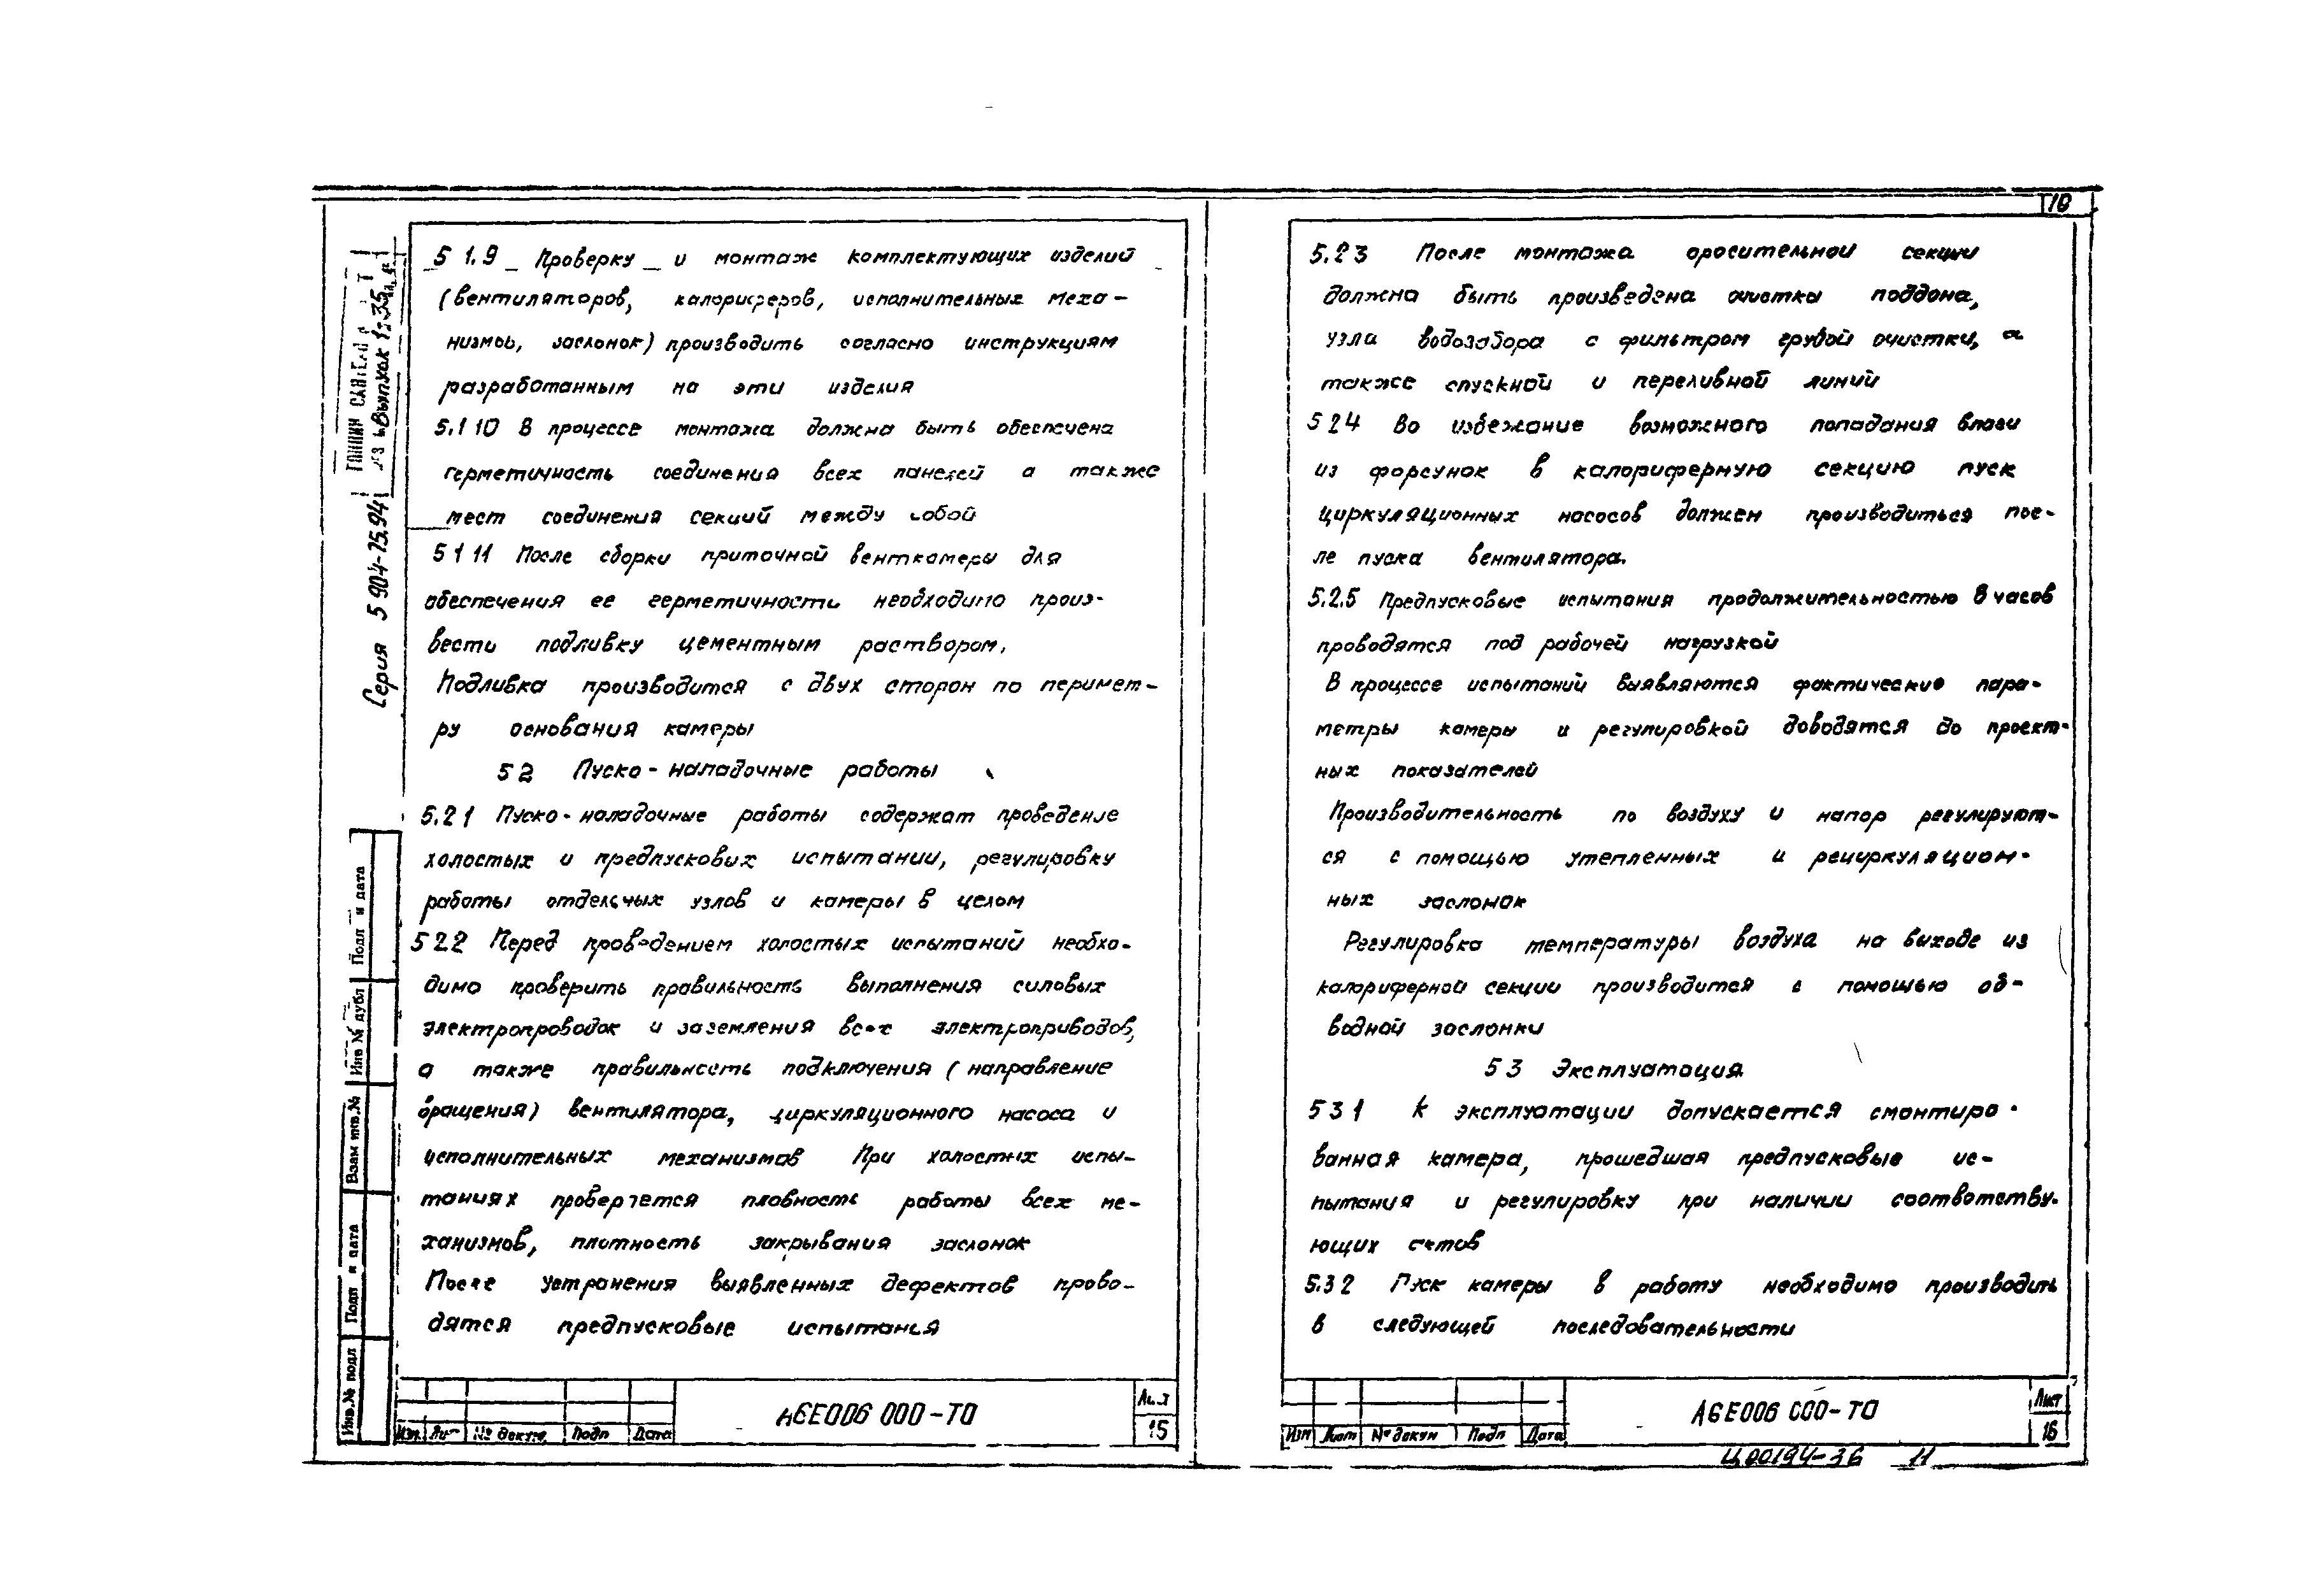 10
5 1.9 Проверку и монтаж комплектующих изделий
(вентиляторов, калориферов, исполнительных меха-
низмов, заслонок) производить согласно инструкциям
разработанным на эти изделия
5.1 10 В процессе монтажа должна быть обеспечена
герметичность соединения всех панелей а также
мест соединения секций между собой
5 1 11 После сборки приточной венткамеры для
обеспечения ее герметичности необходимо произ-
вести подливку цементным раствором.
Подливка производится с двух сторон по перимет-
ру основания камеры
5 2 Пуско-наладочные работы
5.2 1 Пуско-наладочные работы содержат проведение
холостых и предпусковых испытании, регулировку
работы отдельных узлов и камеры в целом
5 2 2 Перед проведением холостых испытаний необхо-
димо проверить правильность выполнения силовых
электропроводок и заземления всех электроприводов,
а также правильность подключения (направление
вращения) вентилятора, циркуляционного насоса и
исполнительных механизмов При холостых испы-
таниях проверяется плавность работы всех ме-
ханизмов, плотность закрывания заслонок
После устранения выявленных дефектов прово-
дятся предпусковые испытания
А6Е006 000-ТО
Лист
15
Изм Лист № докум Подп Дата
5.2 3 После монтажа оросительной секции
должна быть произведена очистка поддона,
узла водозабора с фильтром грубой очистки, а
также спускной и переливной линий
5 2 4 Во избежание возможного попадания влаги
из форсунок в калориферную секцию пуск
циркуляционных насосов должен производиться пос-
ле пуска вентилятора.
5.2.5 Предпусковые испытания продолжительностью 8 часов
проводятся под рабочей нагрузкой
В процессе испытаний выявляются фактические пара-
метры камеры и регулировкой доводятся до проект-
ных показателей
Производительность по воздуху и напор регулируют-
ся с помощью утепленных и рециркуляцион-
ных заслонок
Регулировка температуры воздуха на выходе из
калориферной секции производится с помощью об-
водной заслонки
5 3 Эксплуатация
5 3 1 К эксплуатации допускается смонтиро-
ванная камера, прошедшая предпусковые ис-
пытания и регулировку при наличии соответству-
ющих актов
5.3 2 Пуск камеры в работу необходимо производить
в следующей последовательности
А6Е006 000-ТО
Лист
16
Изм Лист № докум Подп Дата
Ц00194-36 11
Серия 5 904-75.94
Выпуск 1-35
Подп и дата
Инв № дубл
Взам инв.№
Подп и дата
Инв.№ подл